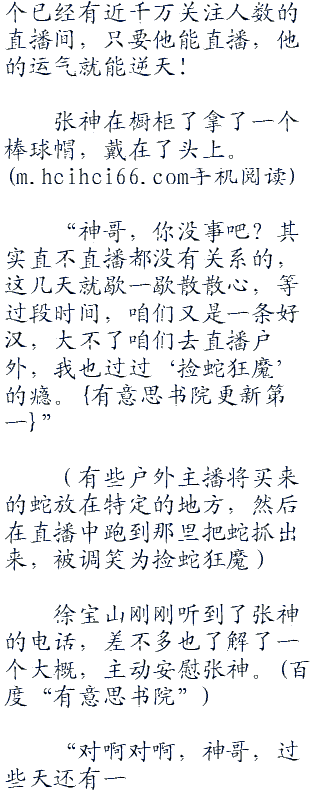 个已经有近千万关注人数的
直播间，只要他能直播，他
的运气就能逆天！
张神在橱柜了拿了一个
棒球帽，戴在了头上。
(m.hcihci66.com手机阅读)
“神哥，你没事吧？其
实直不直播都没有关系的，
这几天就歇一歇散散心，等
过段时间，咱们又是一条好
汉，大不了咱们去直播户
外，我也过过‘捡蛇狂魔’
的瘾。{有意思书院更新第
一}”
（有些户外主播将买来
的蛇放在特定的地方，然后
在直播中跑到那里把蛇抓出
来，被调笑为捡蛇狂魔）
徐宝山刚刚听到了张神
的电话，差不多也了解了一
个大概，主动安慰张神。(百
度“有意思书院”)
“对啊对啊，神哥，过
些天还有一